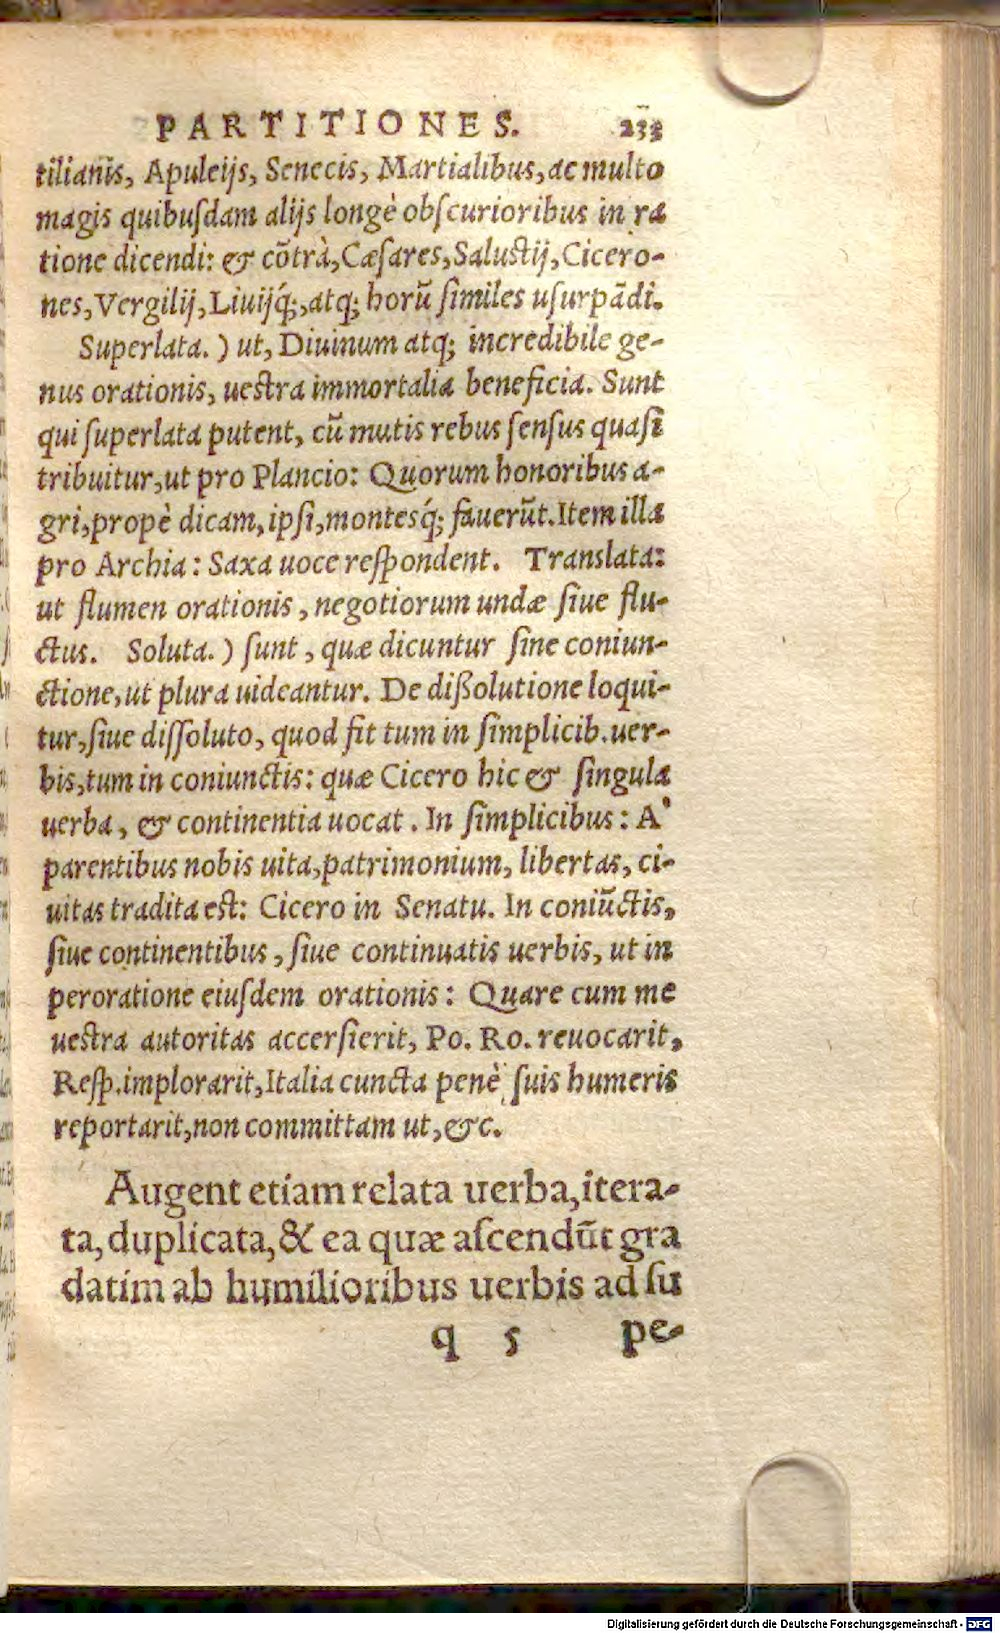 PARTITIONES. 233
tilianis, Apuleijs, Senecis, Martialibus, ac multo
magis quibuſdam alijs longè obſcurioribus in ra
tione dicendi: & cōtrà, Cæſares, Saluſtij, Cicero-
nes, Vergilij, Liuijq́;, atq; horũ ſimiles uſurpãdi.
Superlata.) ut, Diuinum atq; incredibile ge-
nus orationis, ueſtra immortalia beneficia. Sunt
qui ſuperlata putent, cũ mutis rebus ſenſus quaſi
tribuitur, ut pro Plancio: Quorum honoribus a-
gri, propè dicam, ipſi, montesq́; fauerũt. Item illa
pro Archia: Saxa uoce reſpondent. Translata:
ut flumen orationis, negotiorum undæ ſiue flu-
ctus. Soluta.) ſunt, quæ dicuntur ſine coniun-
ctione, ut plura uideantur. De dißolutione loqui-
tur, ſiue diſſoluto, quod fit tum in ſimplicib. uer-
bis, tum in coniunctis: quæ Cicero hic & ſingula
uerba, & continentia uocat. In ſimplicibus: A'
parentibus nobis uita, patrimonium, libertas, ci-
uitas tradita eſt: Cicero in Senatu. In coniũctis,
ſiue continentibus, ſiue continuatis uerbis, ut in
peroratione eiuſdem orationis: Quare cum me
ueſtra autoritas accerſierit, Po. Ro. reuocarit,
Reſp. implorarit, Italia cuncta penè ſuis humeris
reportarit, non committam ut, &c.
Augent etiam relata uerba, itera-
ta, duplicata, & ea quæ aſcendũt gra
datim ab humilioribus uerbis ad ſu
q 5 pe-
Digitalisierung gefördert durch die Deutsche Forschungsgemeinschaft - DFG